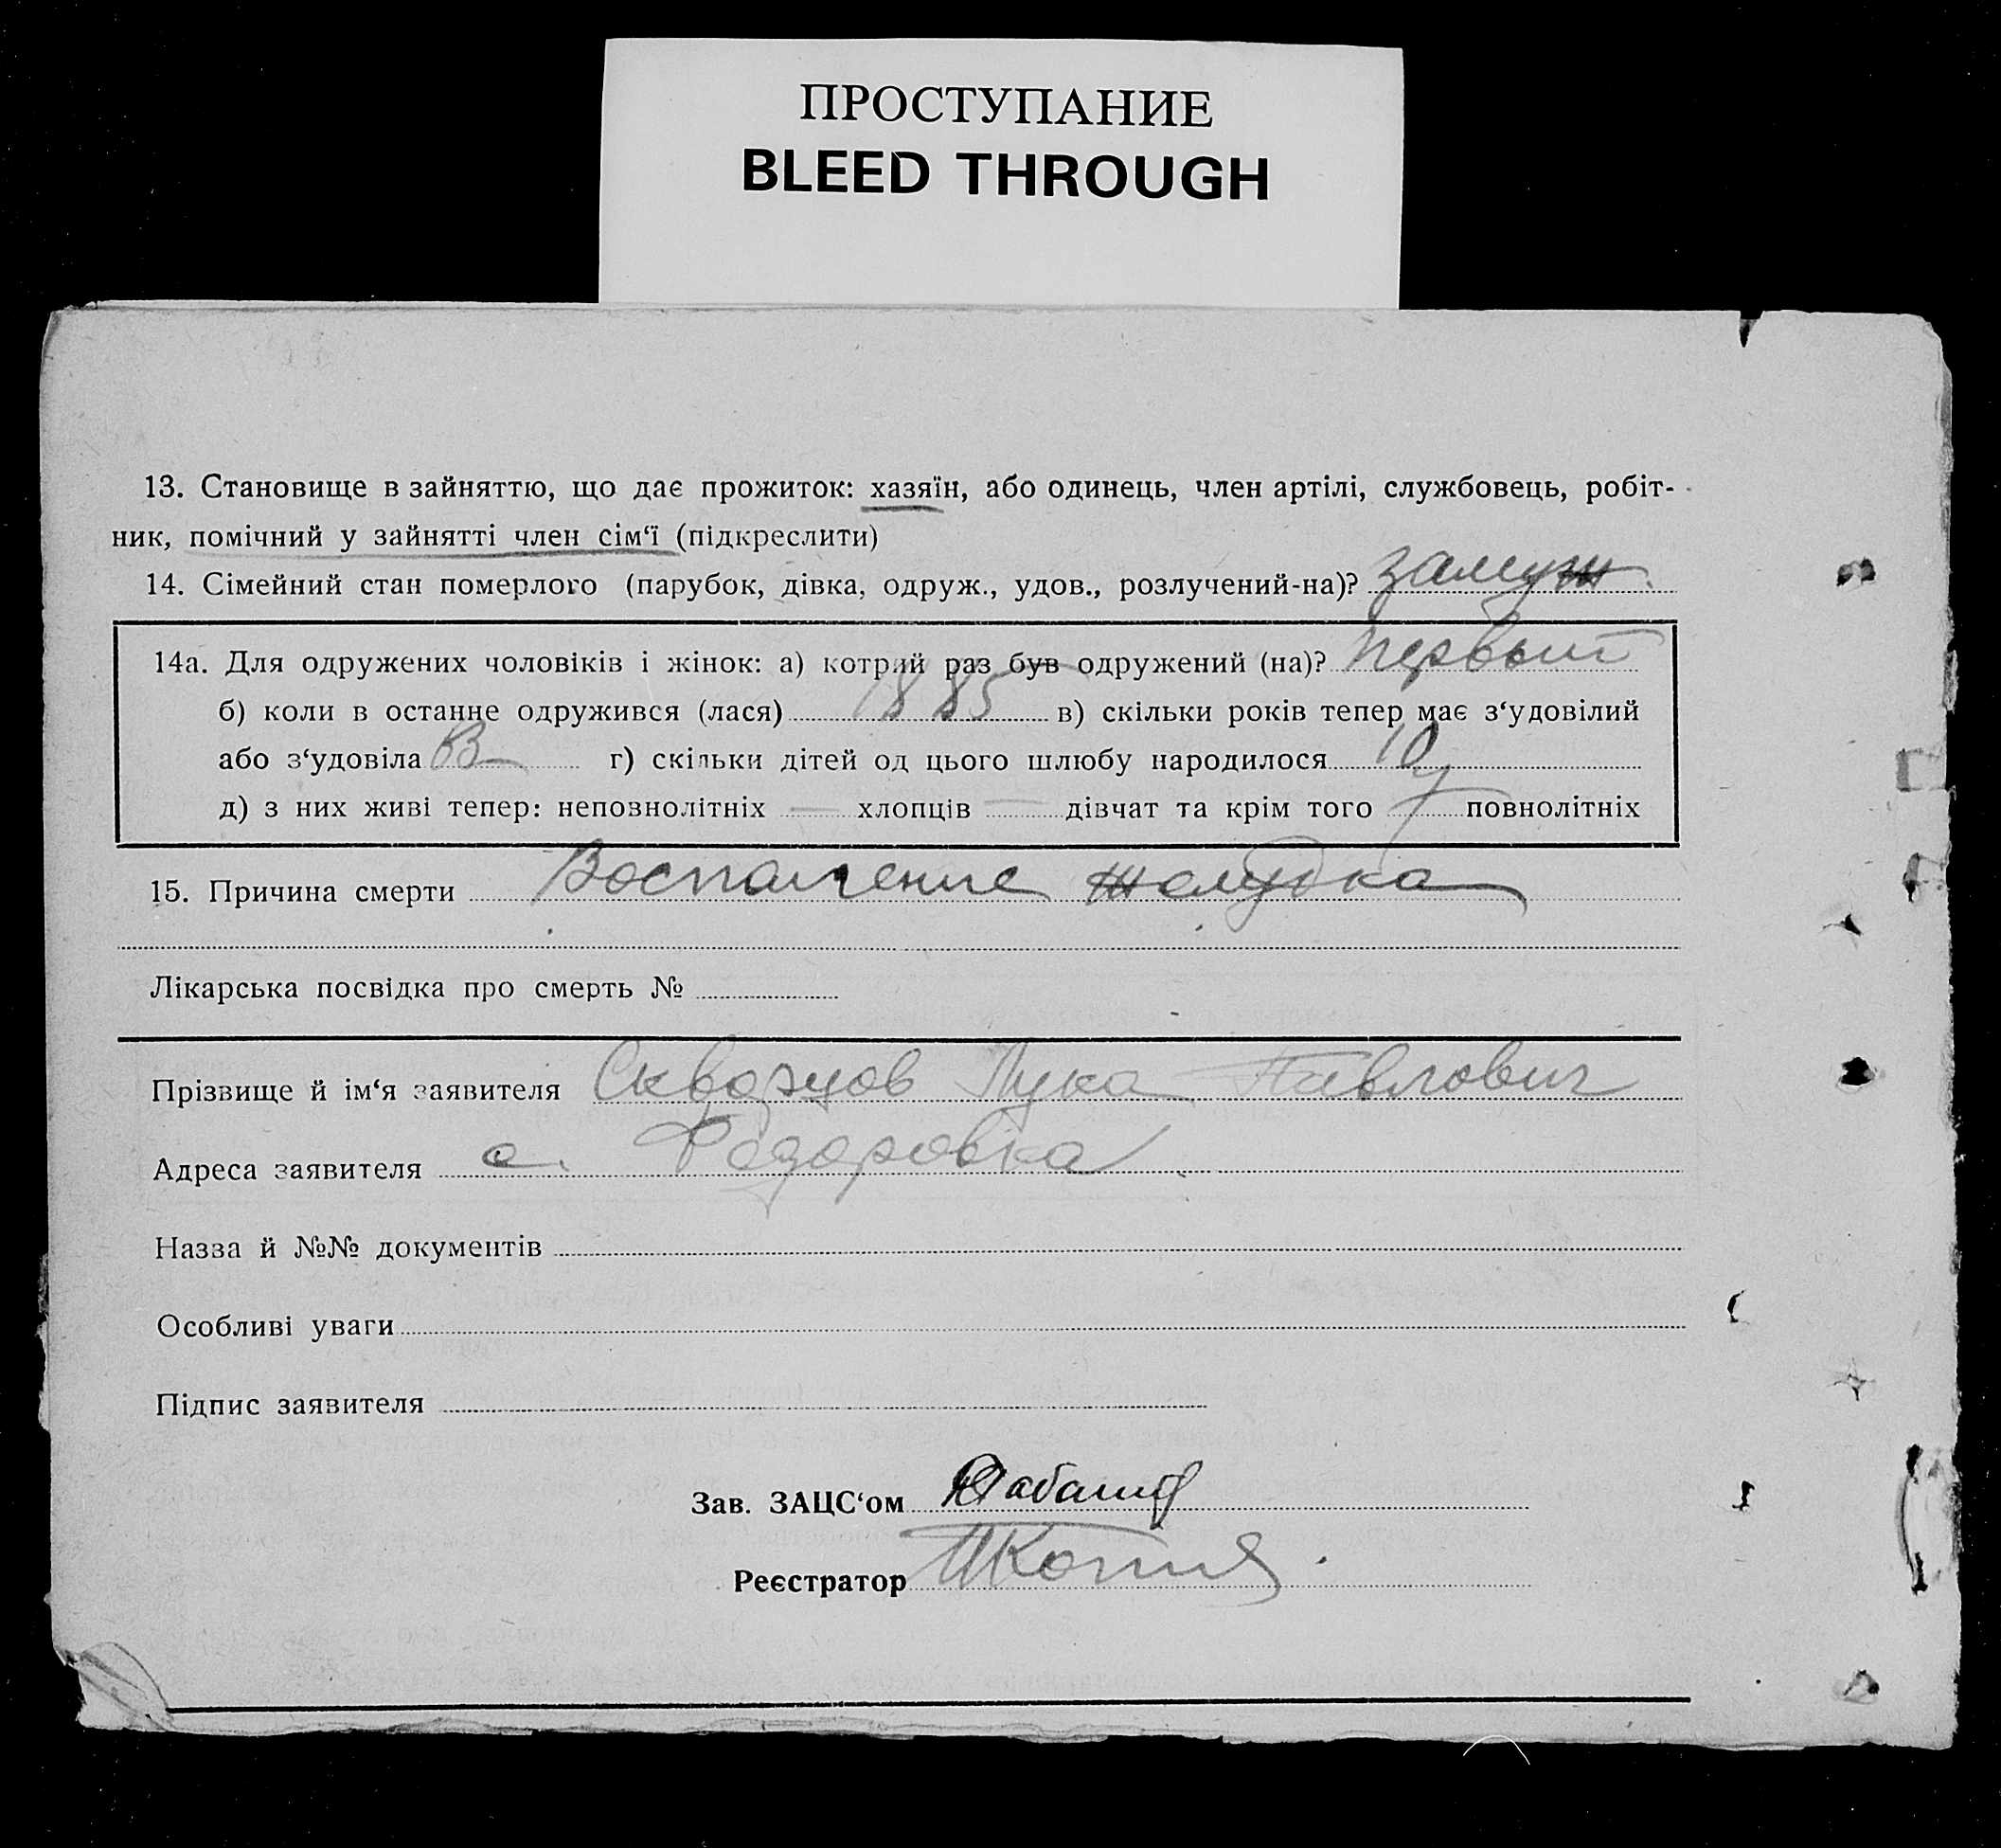 ПРОСТУПАНИЕ
BLEED THROUGH
13. Становище в зайняттю, що дає прожиток: хазяїн, або одинець, член артілі, службовець, робіт-
ник, помічний у зайнятті член сім‘ї (підкреслити)
14. Сімейний стан померлого (парубок, дівка, одруж., удов., розлучений-на)? замуж.
14а. Для одружених чоловіків і жінок: а) котрий раз був одружений (на)? первый
б) коли в останнє одружився (лася) 1885 в) скільки років тепер має з‘удовілий
або з‘удовіла г) скільки дітей од цього шлюбу народилося 10
д) з них живі тепер: неповнолітніх — хлопців — дівчат та крім того 7 повнолітніх
15. Причина смерти Воспаление желудка
Лікарська посвідка про смерть №
Прізвище й ім‘я заявителя Скворцов Лука Павлович
Адреса заявителя с. Федоровка
Назва й №№ документів
Особливі уваги
Підпис заявителя
Зав. ЗАЦС‘ом
Реєстратор